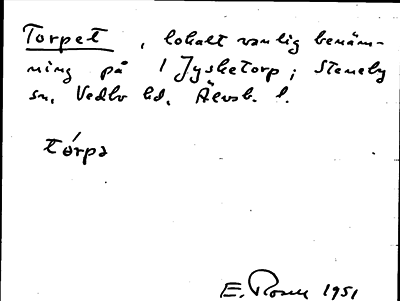 Torpet, lokalt vanlig benäm-
ning på 1 Jysketorp; Steneby
sn, Vedbo hd, Älvsb. l.
tórpə
E. Rosell 1951